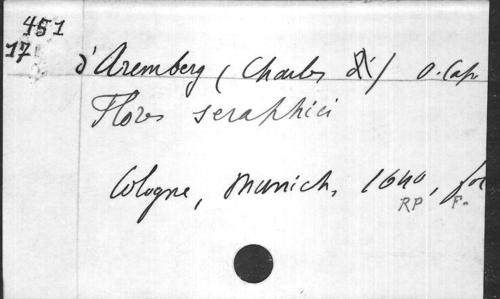 451
17
d'Aremberg (Charles d') O. Cap
Flores seraphici
Cologne, Munich, 1640, fol
RP F.